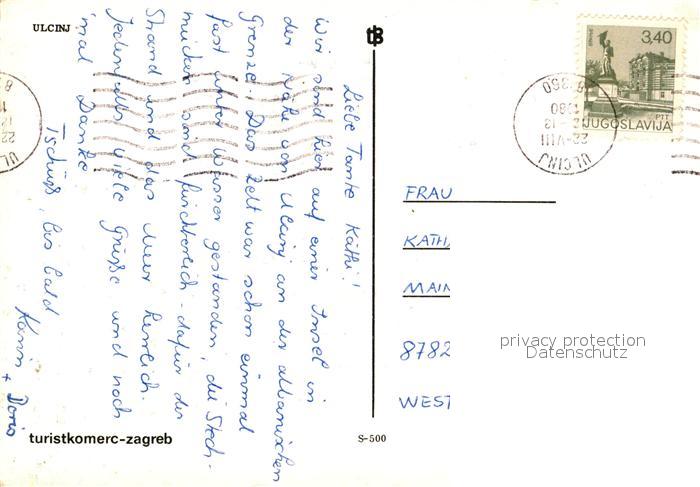 ULCINJ
Liebe Tante Käthi!
Wir sind hier auf einer Insel in
der Nähe von Ulcinj an der albanischen
Grenze! Das Zelt war schon einmal
fast unter Wasser gestanden, die Stech-
mücken sind fürchterlich - dafür der
Strand und das Meer herrlich.
Jedenfalls viele Grüße und noch
mal Danke
Tschüß, bis bald
Karin
+ Doris
turistkomerc-zagreb
S-500
3,40
PTT
JUGOSLAVIJA
22-VIII
1980
ULCINJ
FRAU
KATH
MAIN
8782
WEST
privacy protection
Datenschutz